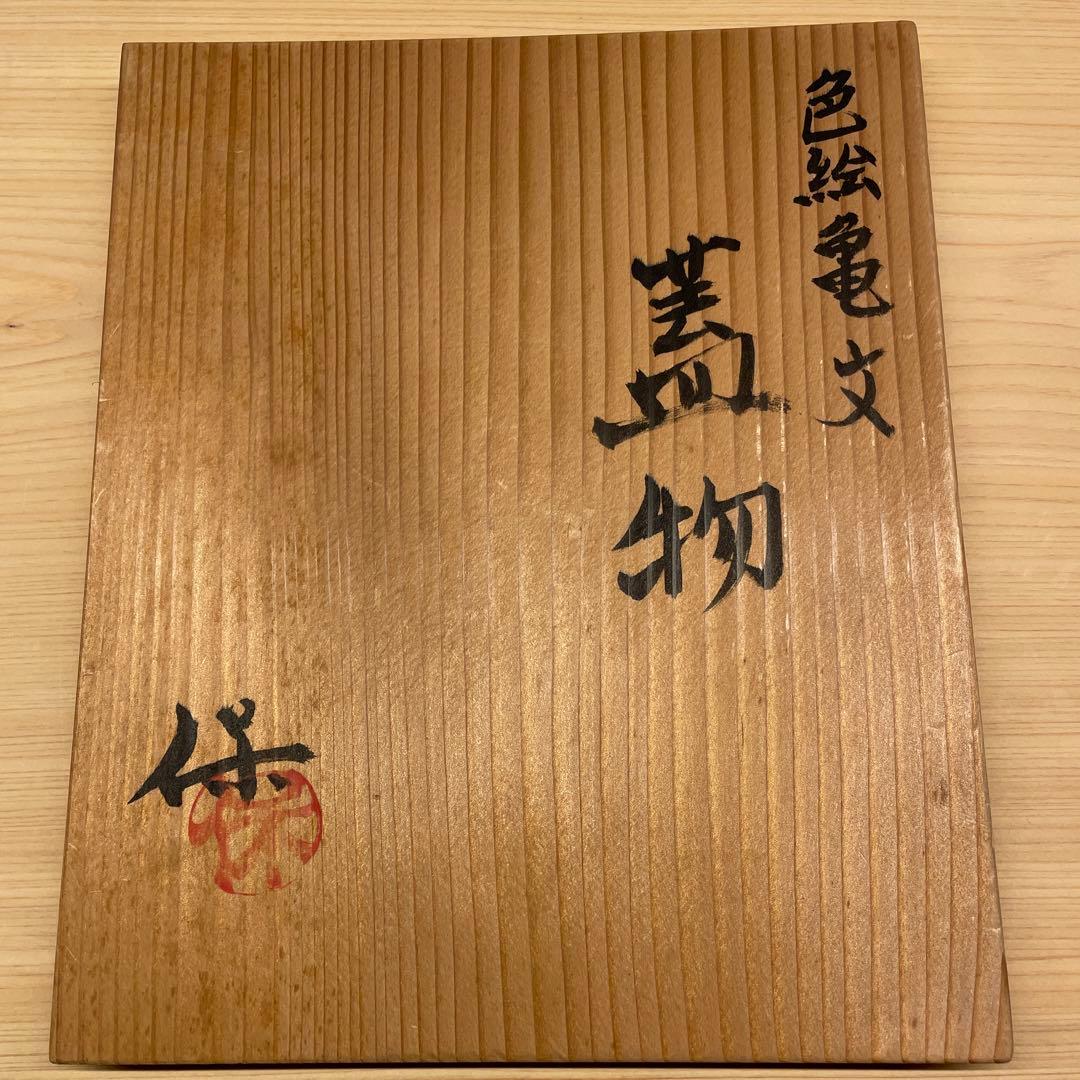 色絵亀文
蓋物
保